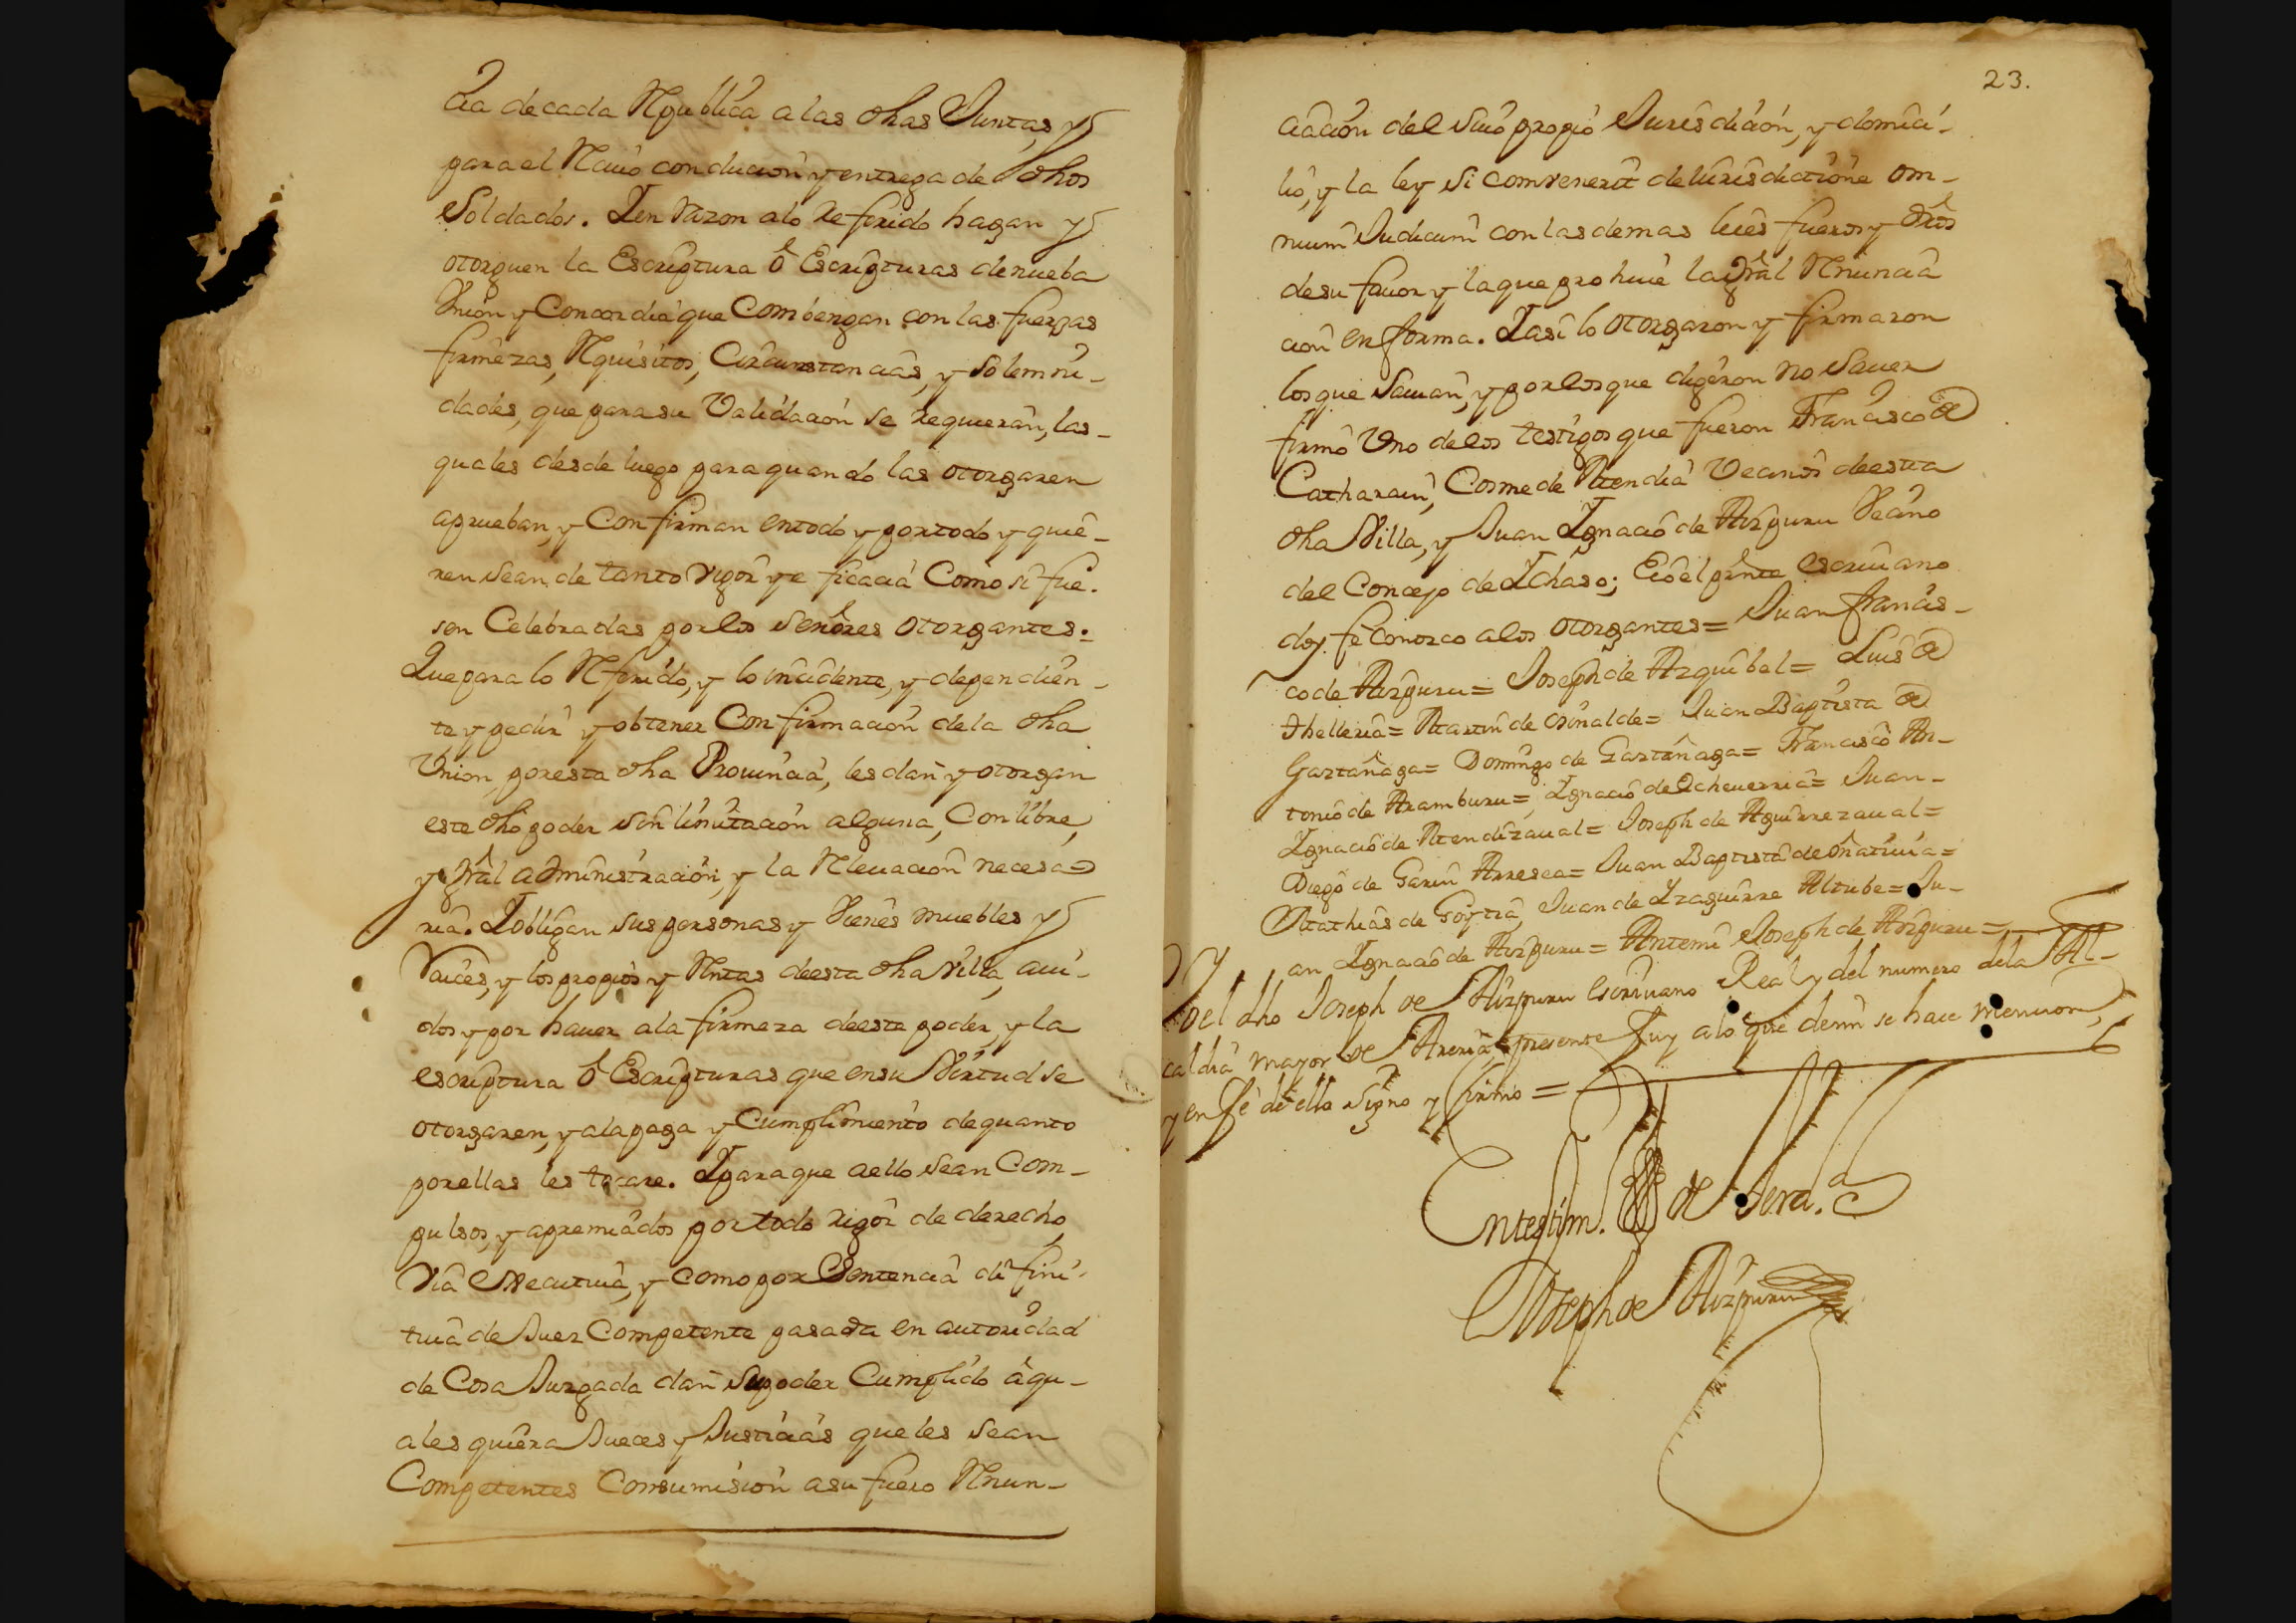 cia de cada Republica a las dhas Juntas, y
para el Reciuo conducion y entrega de dhos
Soldados. Y en razon alo Referido hagan y
otorguen la Escriptura ô Escripturas de nueba
Vnion y Concordia que Combengan con las fuerzas
firmezas, Requisitos, Circunstancias, y Solemni-
dades, que para su Validacion se requieran, las-
quales desde luego para quando las otorgaren
aprueban, y Confirman en todo y por todo y quie-
ren sean de tanto vigor y e ficacia Como si fue-
sen Celebradas por los señores otorgantes.=
Que para lo Referido, y lo incidente, y dependien-
te y pedir y obtener Confirmacion de la dha
Vnion, por esta dha Prouincia, les dan y otorgan
este dho poder sin limitacion alguna, Con libre,
y Gral administracion, y la Releuacion necesa=
ria. Y obligan sus personas y Vienes muebles y
Raices, y los propios y Rentas de esta dha villa, aui-
dos y por hauer a la firmeza de este poder, y la
escriptura ô Escripturas que en su Virtud se
otorgaren, y a la paga y Cumplimiento de quanto
por ellas les tocare. Y para que a ello sean Com-
pulsos, y apremiados por todo rigor de derecho
via executiua, y como por Sentencia difini-
tiua de Juez Competente pasada en autoridad
de Cosa Juzgada dan su poder Cumplido â qu-
ales quiera Jueces y Justicias que les sean
Competentes Con sumision a su fuero Renun-
23.
ciacion del suio propio Jurisdicion, y domici-
lio, y la ley si comvenerit de iurisdictione om-
nium Judicum con las demas leies fueros y dros
de su fauor y la que prohiue la Gral Renuncia
cion en forma. Y asi lo otorgaron y firmaron
los que sauian, y por los que digeron no sauer
firmô Vno de los testigos que fueron Francisco de
Catharain, Cosme de Mendia Vecinos de esta
dha Villa, y Juan Ignacio de Aizpuru Vecino
del Concejo de Ichaso; E io el prnte escriuano
doy fe conozco a los otorgantes= Juan Francis-
co de Aizpuru= Joseph de Arguibel= Luis de
Thelleria= Martin de osinalde= Juan Baptista de
Gaztañaga= Domingo de Gaztañaga= Francisco An-
tonio de Aramburu= Ignacio de Echeuerria= Juan-
Ignacio de Mendizaual= Joseph de Aguirrezaual=
Diego de Garin Arresea= Juan Baptista de oñatiuia=
Mathias de Goytia Juan de Izaguirre Altube= Ju-
an Ignacio de Aizpuru= Antemi Joseph de Aizpuru=
Yo el dho Joseph de Aizpuru escriuano Real y del numero de la Al-
caldia mayor de Areria presente fuy a lo que demi se hace mencion,
y en fe de ello signo y firmo =
En testim. de Verd.
Joseph de Aizpuru